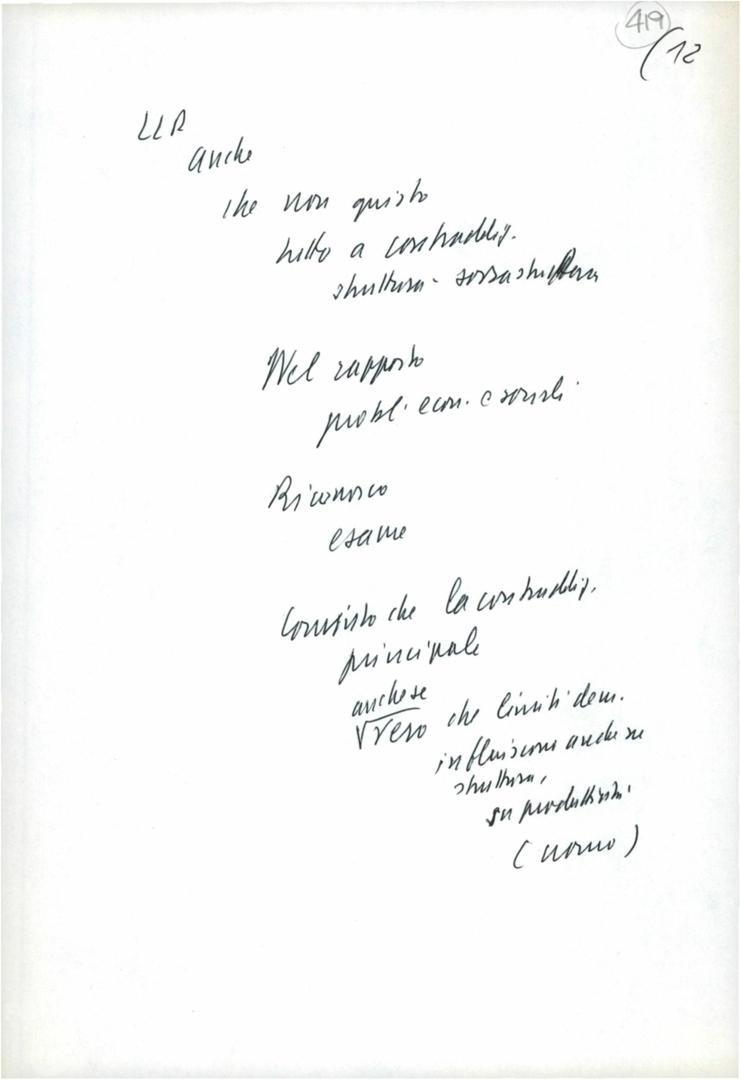 419
(12
LLR
anche
che non giusto
tutto a contraddiz.
struttura - sovrastruttura
Nel rapporto
probl. econ. e sociali
Riconosco
esame
Consisto che la contraddiz.
principale
anche se
√ vero che limiti dem.
influiscono anche su
struttura,
su produttività
(uomo)